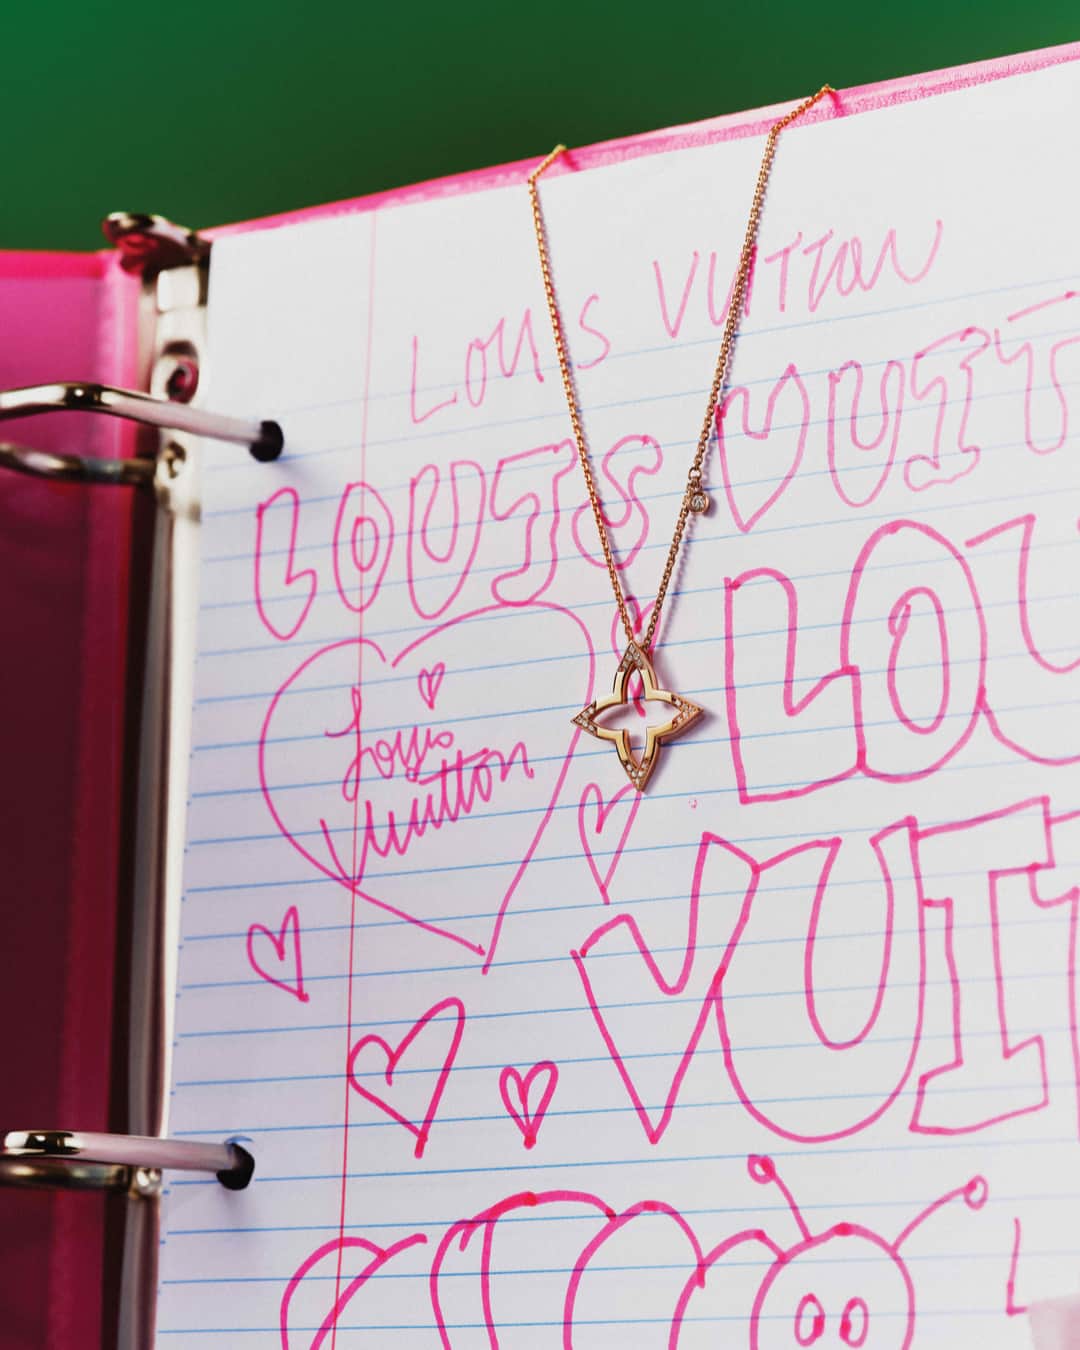 LOUIS VUITTON
LOUIS VUIT
LOU
Louis
Vuitton
VUIT
L